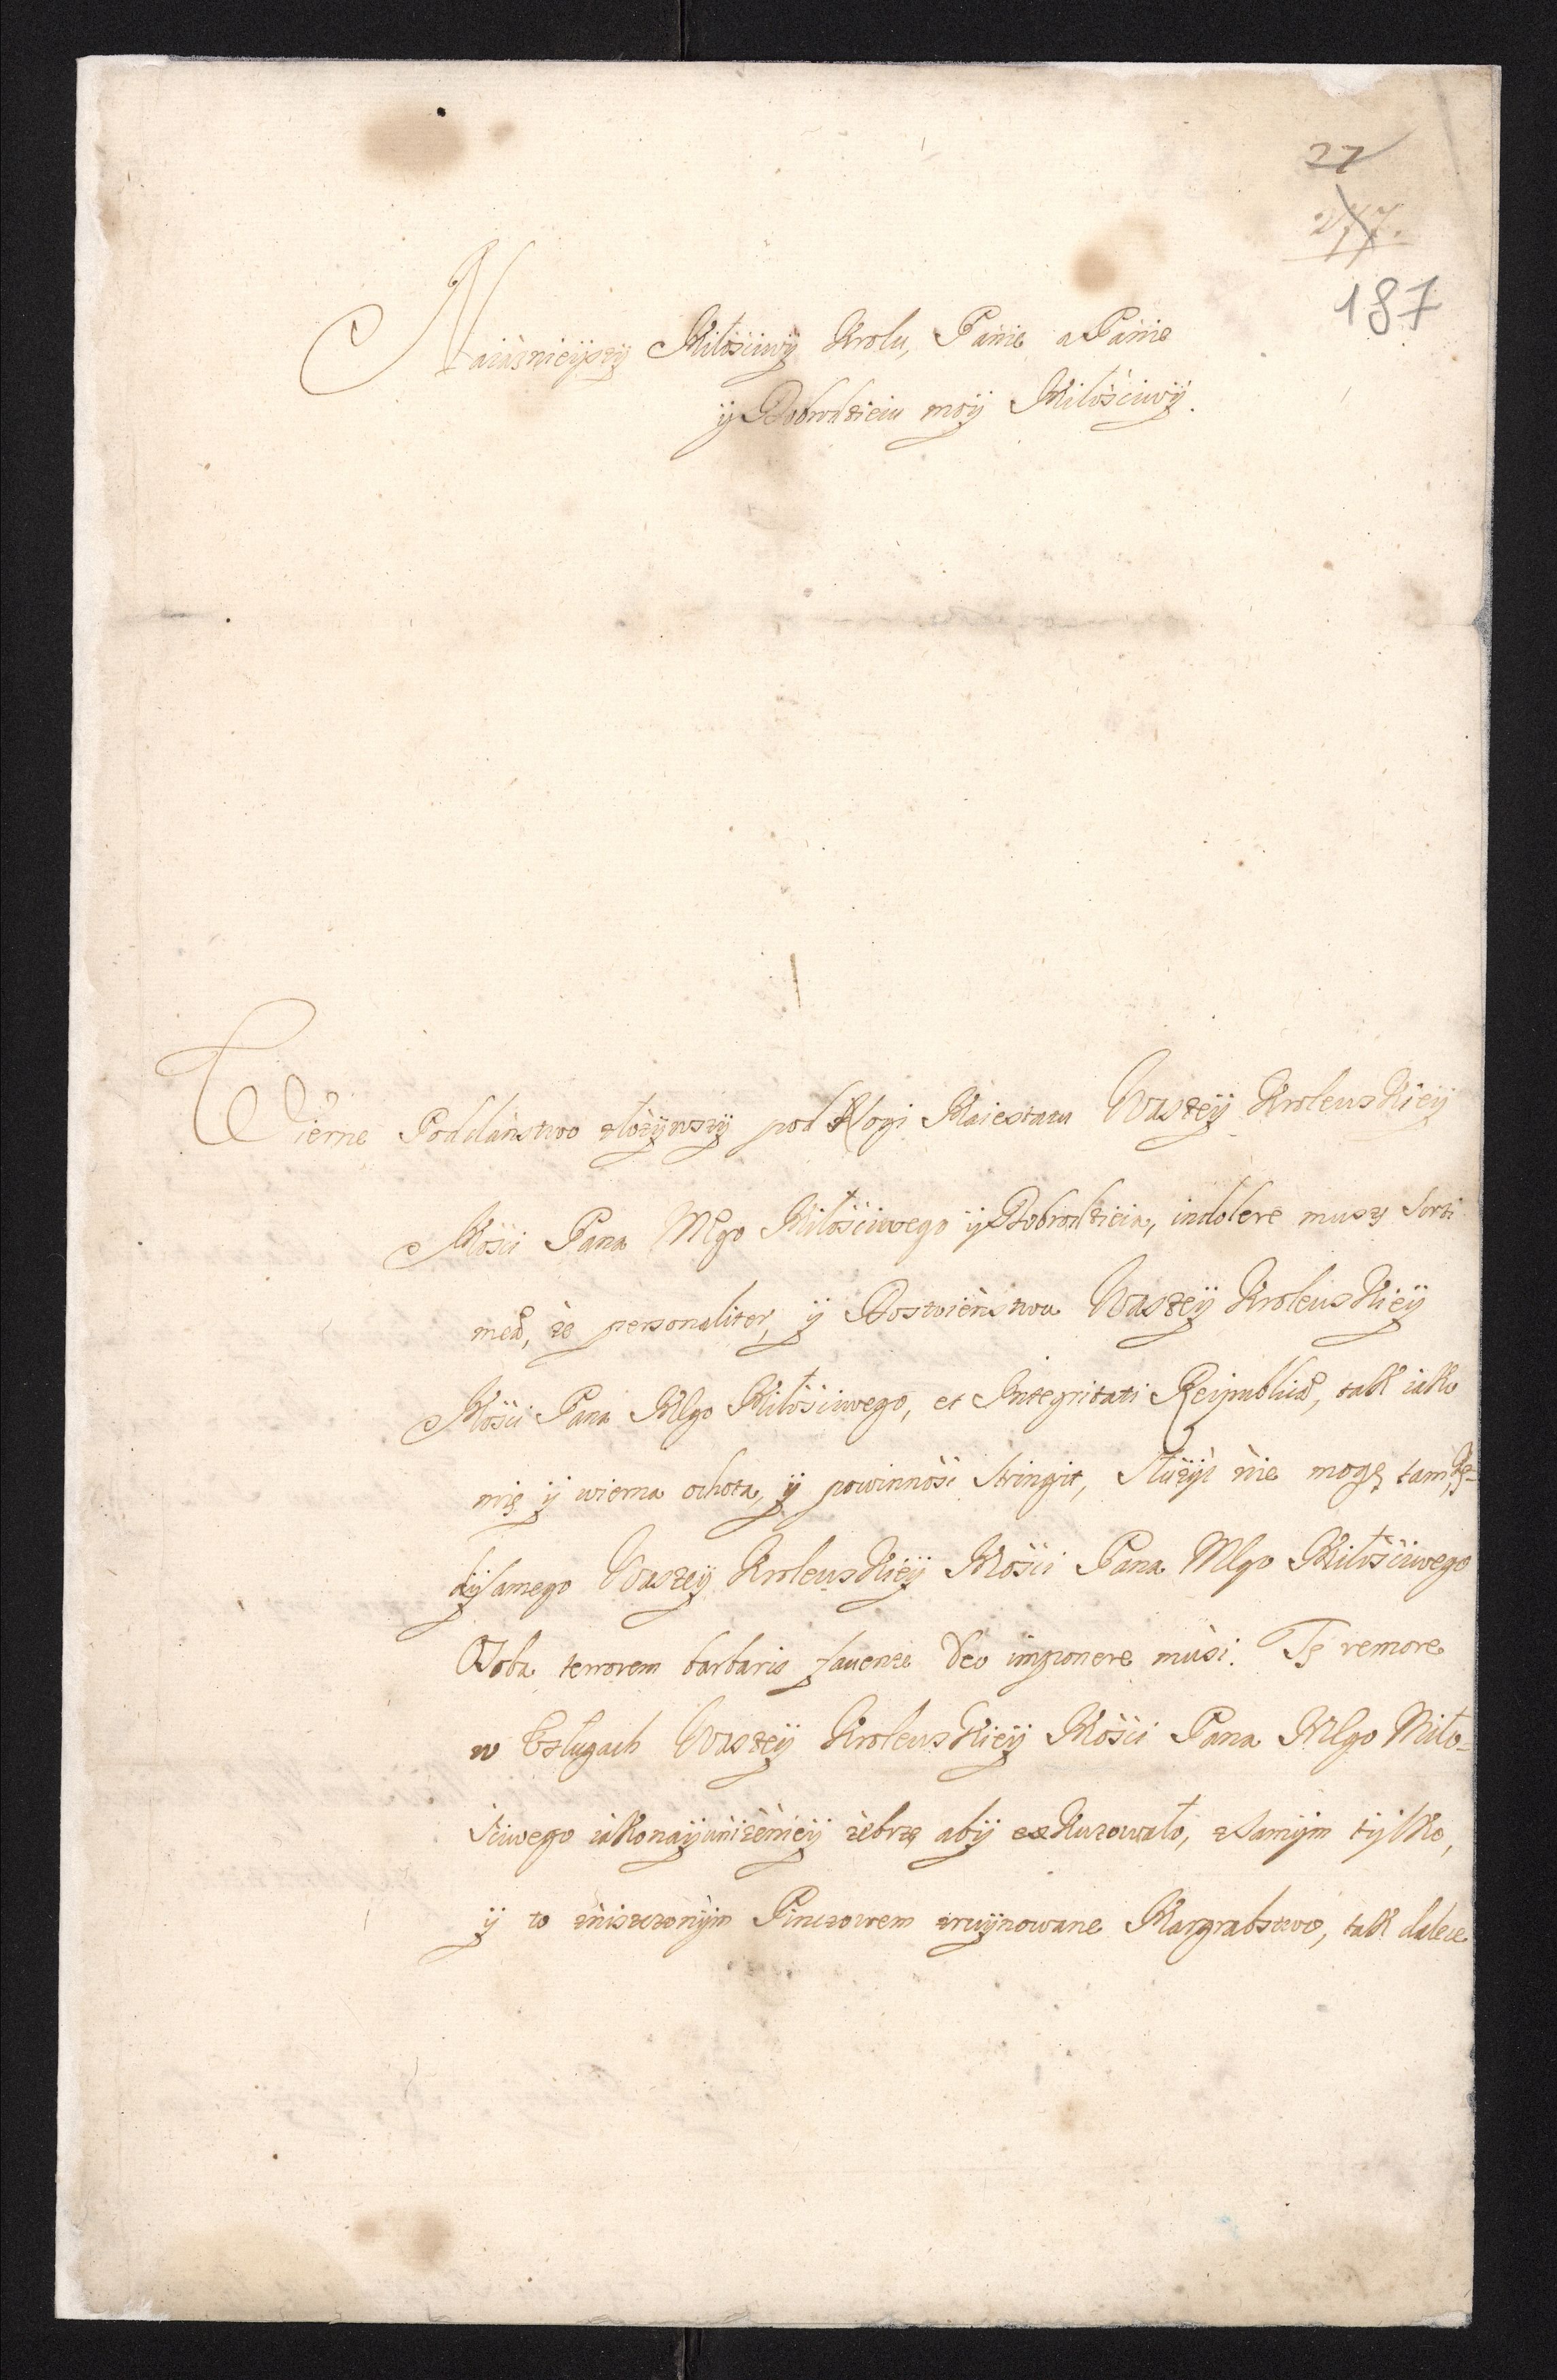 27
277.
187
Naiaśnieyszÿ Miłościwÿ Krolu, Panie a Panie
ÿ Dobrodzieiu moÿ Miłościwÿ.
Wierne Poddaństwo złożÿwszÿ pod Nogi Maiestatu Waszeÿ Krolewskieÿ
Mości Pana Mẽgo Miłościwego ÿ Dobrodzieia, indolere muszę Sorti
meæ, że personaliter, ÿ Dostoieństwu Waszeÿ Krolewskieÿ
Mości Pana Mẽgo Miłościwego, et Integritati Reipublicæ, tak iako
mię ÿ wierna ochota, ÿ powinność stringit, służÿć nie mogę tam, gdzie
Waszeÿ Krolewskieÿ Mości Pana Mẽgo Miłościwego
Osoba terrorem barbaris favente Deo imponere musi. Tę remorę
w Usługach Waszeÿ Krolewskieÿ Mości Pana Mẽgo Miło-
ściwego iako naÿuniżenieÿ żebrzę abÿ exkuzowało, z samÿm tÿlko,
ÿ to zniszczonÿm Pinczowem zruÿnowane Margrabstwo, tak dalece